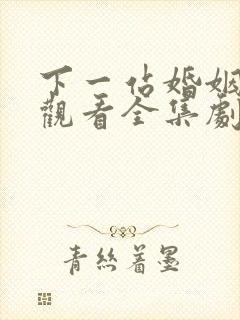 下一站婚姻
觀看全集劇
青絲著墨